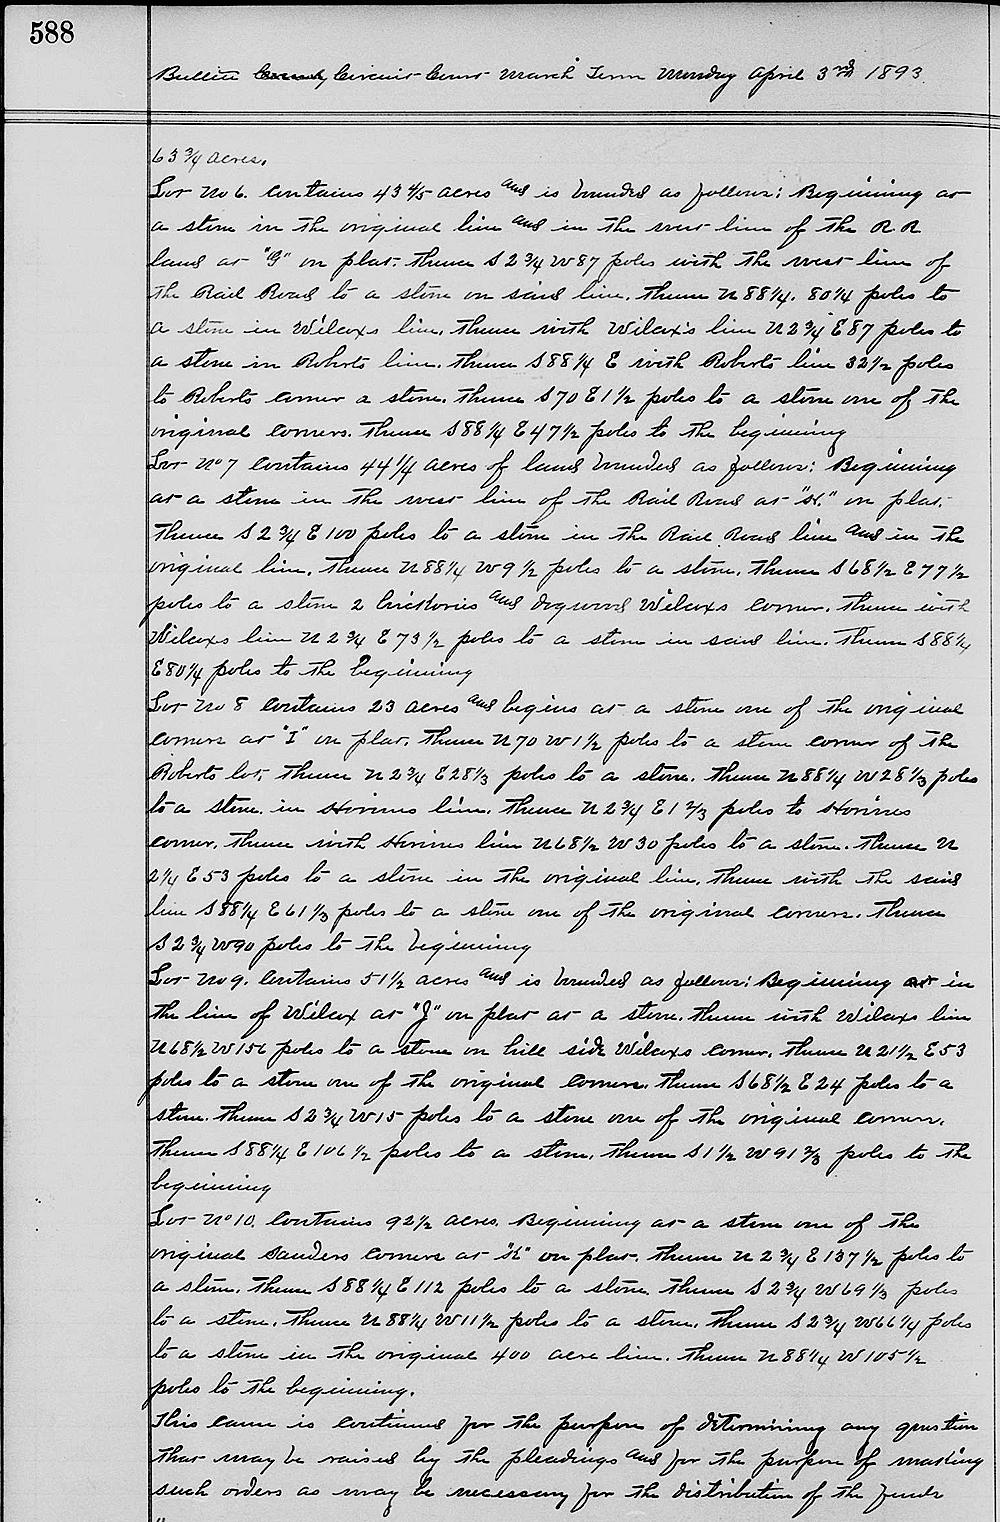 588
Bullitt County Circuit Court March Term Monday April 3rd 1893
63 3/4 acres.
Lot No 6. Contains 43 4/5 acres and is bounded as follows: Beginning at
a stone in the original line and in the west line of the R R
land at "G" on plat. Thence S 2 3/4 W 87 poles with the west line of
the Rail Road to a stone on said line. Thence N 88 1/4. 80 1/4 poles to
a stone in Wilcoxs line. Thence with Wilcox's line N 2 3/4 E 87 poles to
a stone in Roberts line. Thence S 88 1/4 E with Roberts line 32 1/2 poles
to Roberts corner a stone. Thence S 70 E 1 1/2 poles to a stone one of the
original corners. Thence S 88 1/4 E 47 1/2 poles to the beginning
Lot No 7 Contains 44 1/4 acres of land bounded as follows: Beginning
at a stone in the west line of the Rail Road at "H." on plat.
Thence S 2 3/4 E 100 poles to a stone in the Rail Road line and in the
original line. Thence N 88 1/4 W 9 1/2 poles to a stone. Thence S 68 1/2 E 77 1/2
poles to a stone 2 hickories and dogwood Wilcoxs corner. Thence with
Wilcoxs line N 2 3/4 E 73 1/2 poles to a stone in said line. Thence S 88 1/4
E 80 1/4 poles to the beginning
Lot No 8 Contains 23 acres and begins at a stone one of the original
corners at "I" on plat. Thence N 70 W 1 1/2 poles to a stone corner of the
Roberts lot. Thence N 2 3/4 E 28 1/3 poles to a stone. Thence N 88 1/4 W 28 1/3 poles
to a stone in Horines line. Thence N 2 3/4 E 1 2/3 poles to Horines
corner. Thence with Horines line N 68 1/2 W 30 poles to a stone. Thence N
2 1/4 E 53 poles to a stone in the original line. Thence with the said
line S 88 1/4 E 61 1/3 poles to a stone one of the original corners. Thence
S 2 3/4 W 90 poles to the beginning
Lot No 9. Contains 51 1/2 acres and is bounded as follows: Beginning at in
the line of Wilcox at "J" on plat at a stone. Thence with Wilcoxs line
N 68 1/2 W 156 poles to a stone on hill side Wilcoxs corner. Thence N 21 1/2 E 53
poles to a stone one of the original corners. Thence S 68 1/2 E 24 poles to a
stone. Thence S 2 3/4 W 15 poles to a stone one of the original corners.
Thence S 88 1/4 E 106 1/2 poles to a stone. Thence S 1 1/2 W 91 2/3 poles to the
beginning
Lot No 10. Contains 92 1/2 acres. Beginning at a stone one of the
original Sanders corners at "K" on plat. Thence N 2 3/4 E 137 1/2 poles to
a stone. Thence S 88 1/4 E 112 poles to a stone. Thence S 2 3/4 W 69 1/3 poles
to a stone. Thence N 88 1/4 W 11 1/2 poles to a stone. Thence S 2 3/4 W 66 1/4 poles
to a stone in the original 400 acre line. Thence N 88 1/4 W 105 1/2
poles to the beginning.
This cause is continued for the purpose of determining any question
that may be raised by the pleadings and for the purpose of making
such orders as may be necessary for the distribution of the funds
"